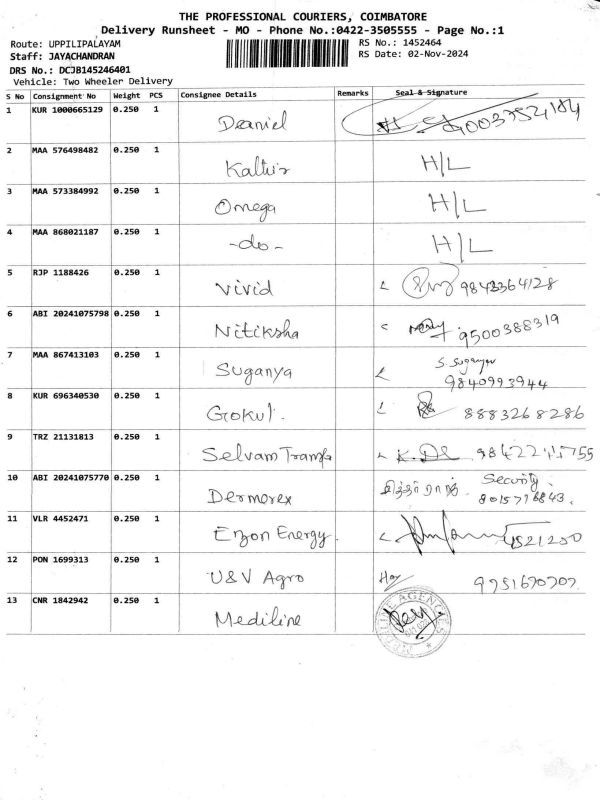 THE PROFESSIONAL COURIERS, COIMBATORE
Delivery Runsheet - MO - Phone No.:0422-3505555 - Page No.:1
Route: UPPILIPALAYAM
RS No.: 1452464
Staff: JAYACHANDRAN
RS Date: 02-Nov-2024
DRS No.: DCJB145246401
Vehicle: Two Wheeler Delivery
S No Consignment No Weight PCS Consignee Details Remarks Seal & Signature
1 KUR 1000665129 0.250 1 Deaniel
2 MAA 576498482 0.250 1 H/L
3 MAA 573384992 0.250 1 Omega H/L
4 MAA 868021187 0.250 1 -do- H/L
5 RJP 1188426 0.250 1 Vivid 9843364128
6 ABI 20241075798 0.250 1 Nitiksha 9500388319
7 MAA 867413103 0.250 1 Suganya S. Suganya
9840993944
8 KUR 696340530 0.250 1 Gokul. 8883268286
9 TRZ 21131813 0.250 1 Selvam
10 ABI 20241075770 0.250 1 Dermerex Security.
11 VLR 4452471 0.250 1 Enzon Energy.
12 PON 1699313 0.250 1 U&V Agro
13 CNR 1842942 0.250 1 Mediline